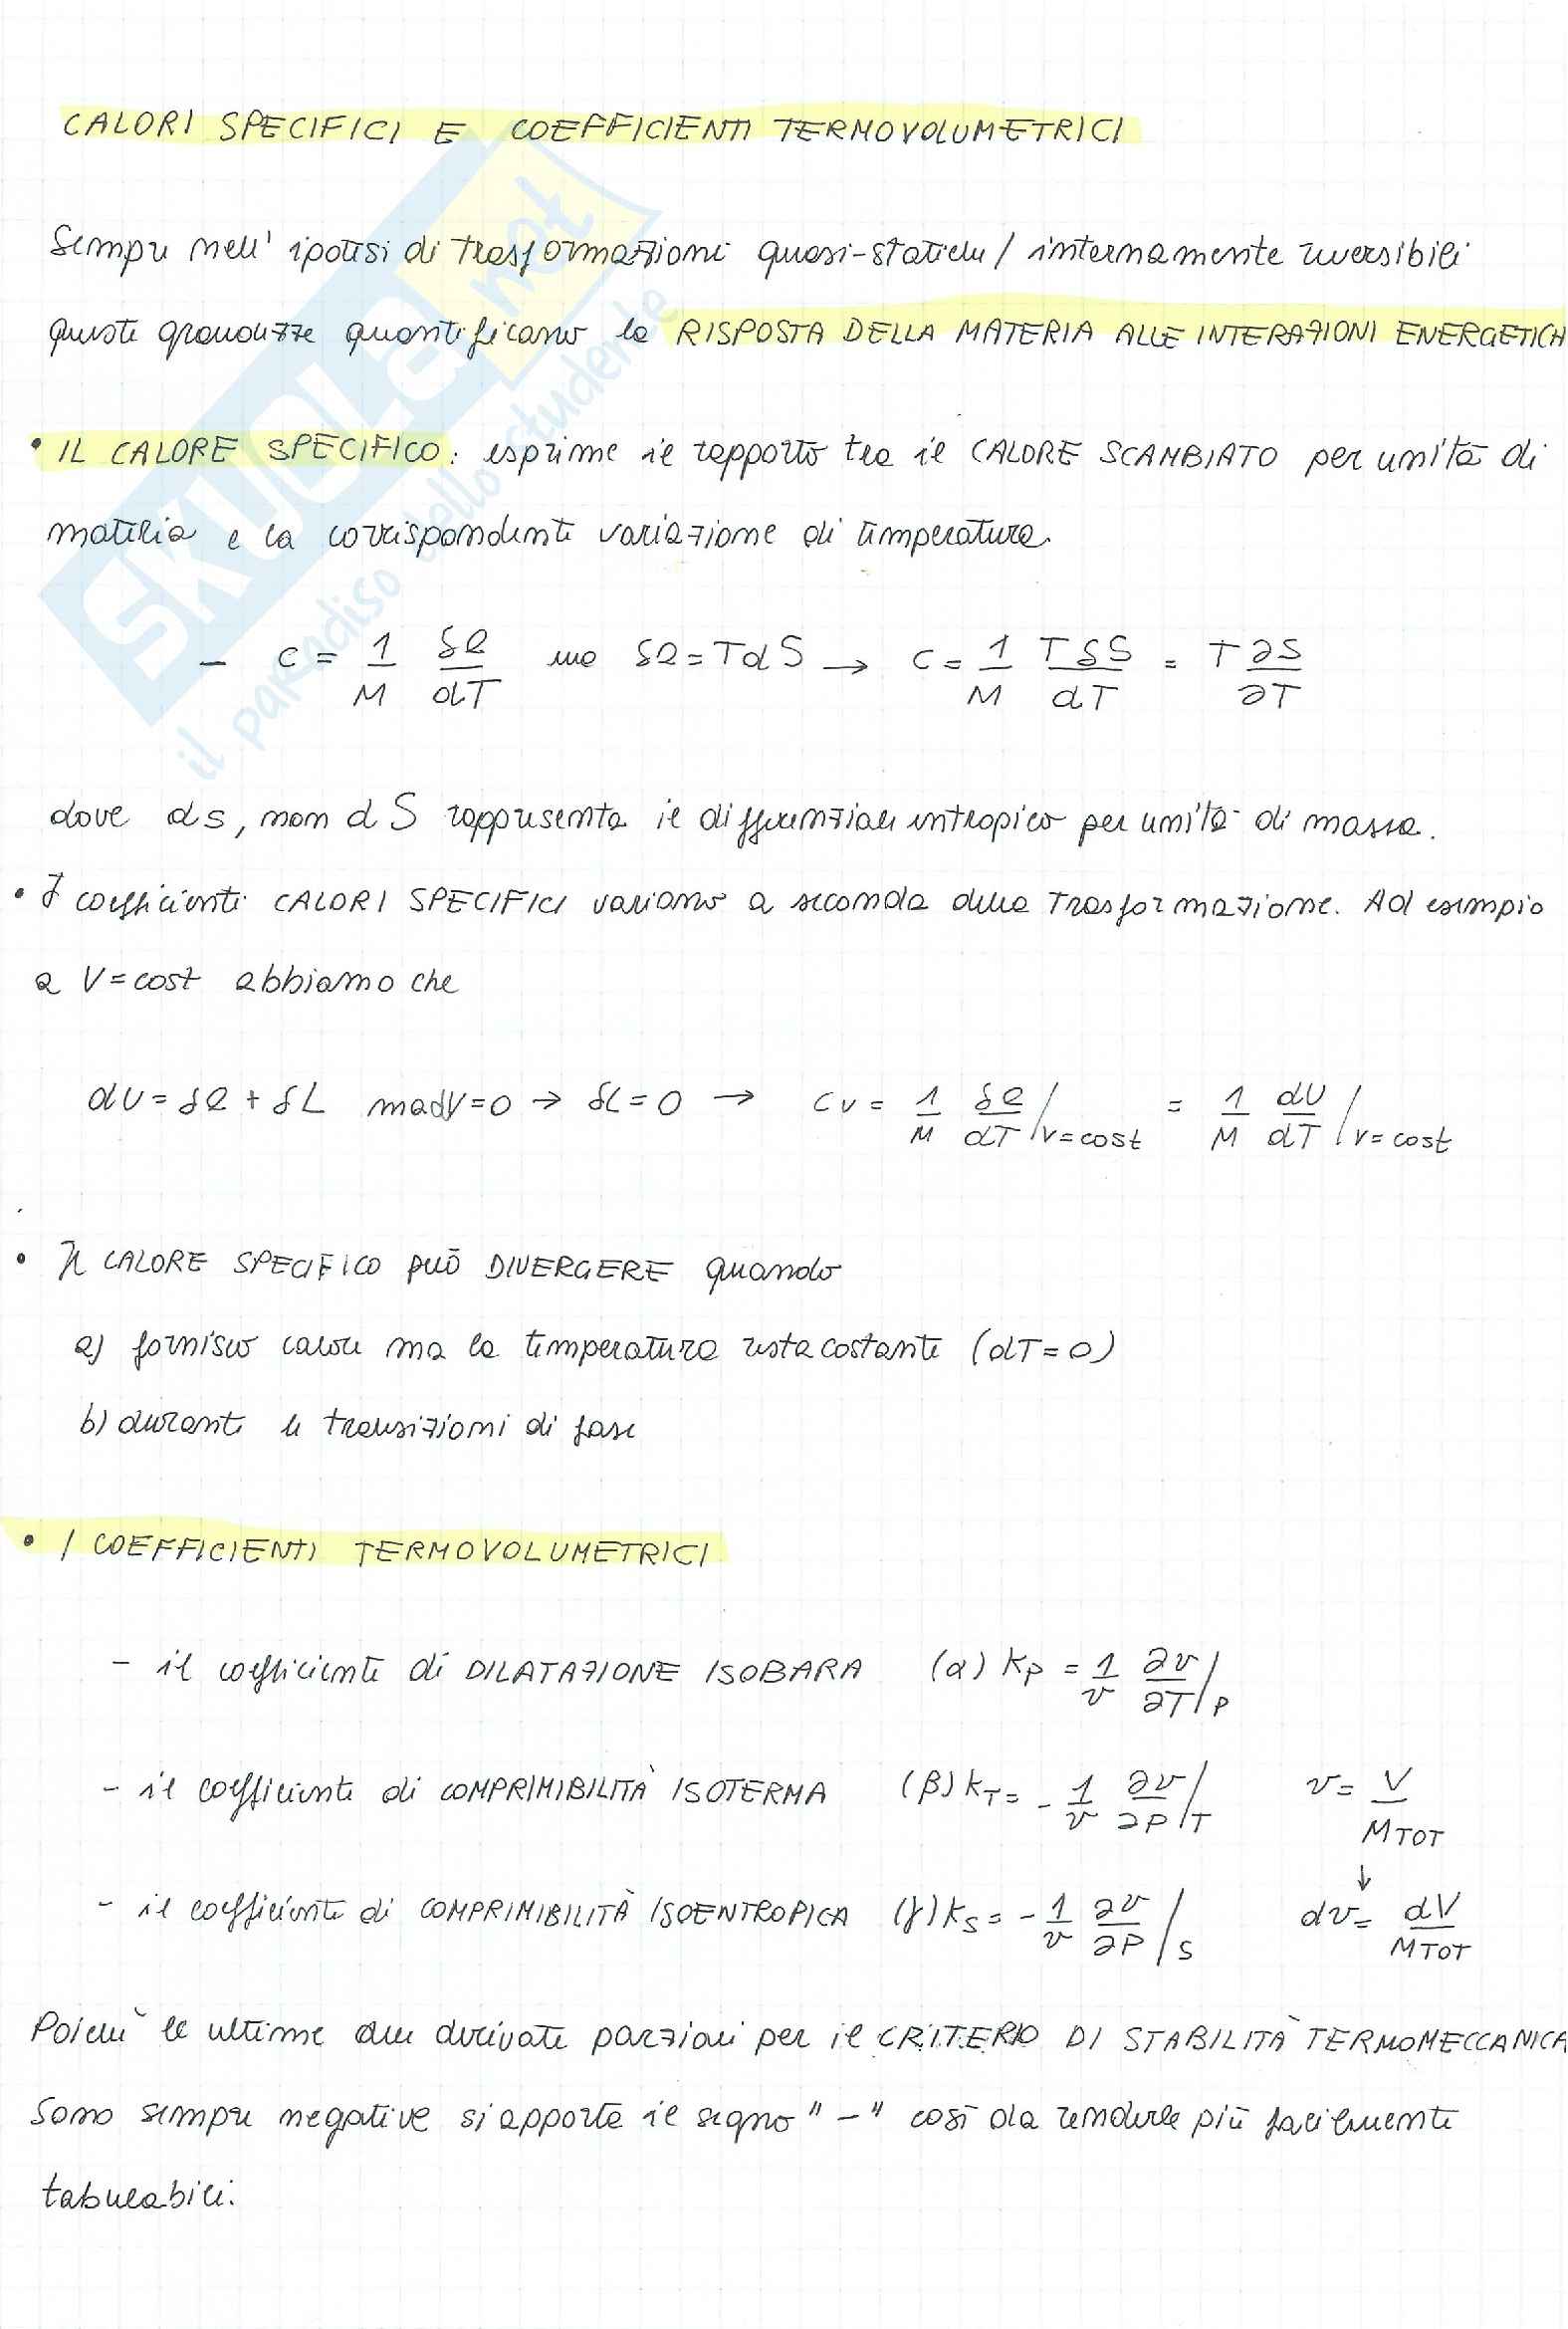 CALORI SPECIFICI E COEFFICIENTI TERMOVOLUMETRICI
Sempre nell' ipotesi di trasformazioni quasi-statiche / internamente reversibili
queste grandezze quantificano la RISPOSTA DELLA MATERIA ALLE INTERAZIONI ENERGETICH
• IL CALORE SPECIFICO: esprime il rapporto tra il CALORE SCAMBIATO per unità di
materia e la corrispondente variazione di temperatura.
- c = 1/M δQ/dT ma δQ = TdS → c = 1/M TδS/dT = T ∂s/∂T
dove ds, non dS rappresenta il differenziale entropico per unità di massa.
• I coefficienti CALORI SPECIFICI variano a seconda della trasformazione. Ad esempio
a V = cost abbiamo che
dU = δQ + δL ma dV = 0 → δL = 0 → cv = 1/M δQ/dT |V = cost = 1/M dU/dT |V = cost
• Il CALORE SPECIFICO può DIVERGERE quando
a) fornisco calore ma la temperatura resta costante (dT = 0)
b) durante le transizioni di fase
• I COEFFICIENTI TERMOVOLUMETRICI
- il coefficiente di DILATAZIONE ISOBARA (α) kP = 1/v ∂v/∂T |P
- il coefficiente di COMPRIMIBILITÀ ISOTERMA (β) kT = - 1/v ∂v/∂P |T v = V/MTOT
↓
- il coefficiente di COMPRIMIBILITÀ ISOENTROPICA (γ) kS = - 1/v ∂v/∂P |S dv = dV/MTOT
Poiché le ultime due derivate parziali per il CRITERIO DI STABILITÀ TERMOMECCANICA
sono sempre negative si apporta il segno " - " così da renderle più facilmente
tabulabili.
SKUOLA.net
il paradiso dello studente